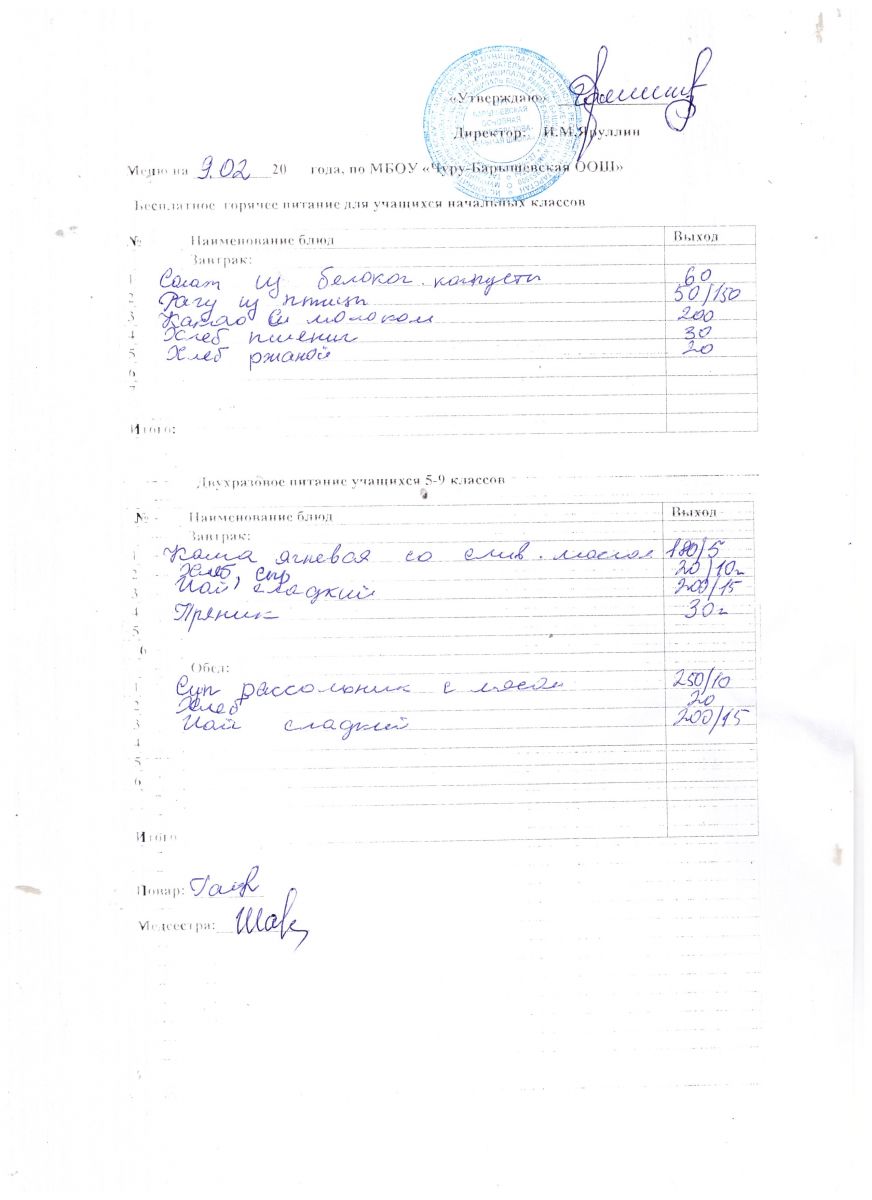 «Утверждаю»
Директор: И.М.Яруллин
Меню на 9.02 20 года, по МБОУ «Чуру-Барышевская ООШ»
Бесплатное горячее питание для учащихся начальных классов
№ Наименование блюд Выход
Завтрак:
1 Салат из белоког. капусты 60
2 Рагу из птицы 50/150
3 Какао с молоком 200
4 Хлеб пшениг 30
5 Хлеб ржаной 20
6
7
Итого:
Двухразовое питание учащихся 5-9 классов
№ Наименование блюд Выход
Завтрак:
1 Каша ягневая со слив. маслом 180/5
2 Хлеб, сыр 20/10г
3 Чай сладкий 200/15
4 Пряник 30г
5
6
Обед:
1 Суп рассольник с мясом 250/10
2 Хлеб 20
3 Чай сладкий 200/15
4
5
6
Итого
Повар:
Медсестра: